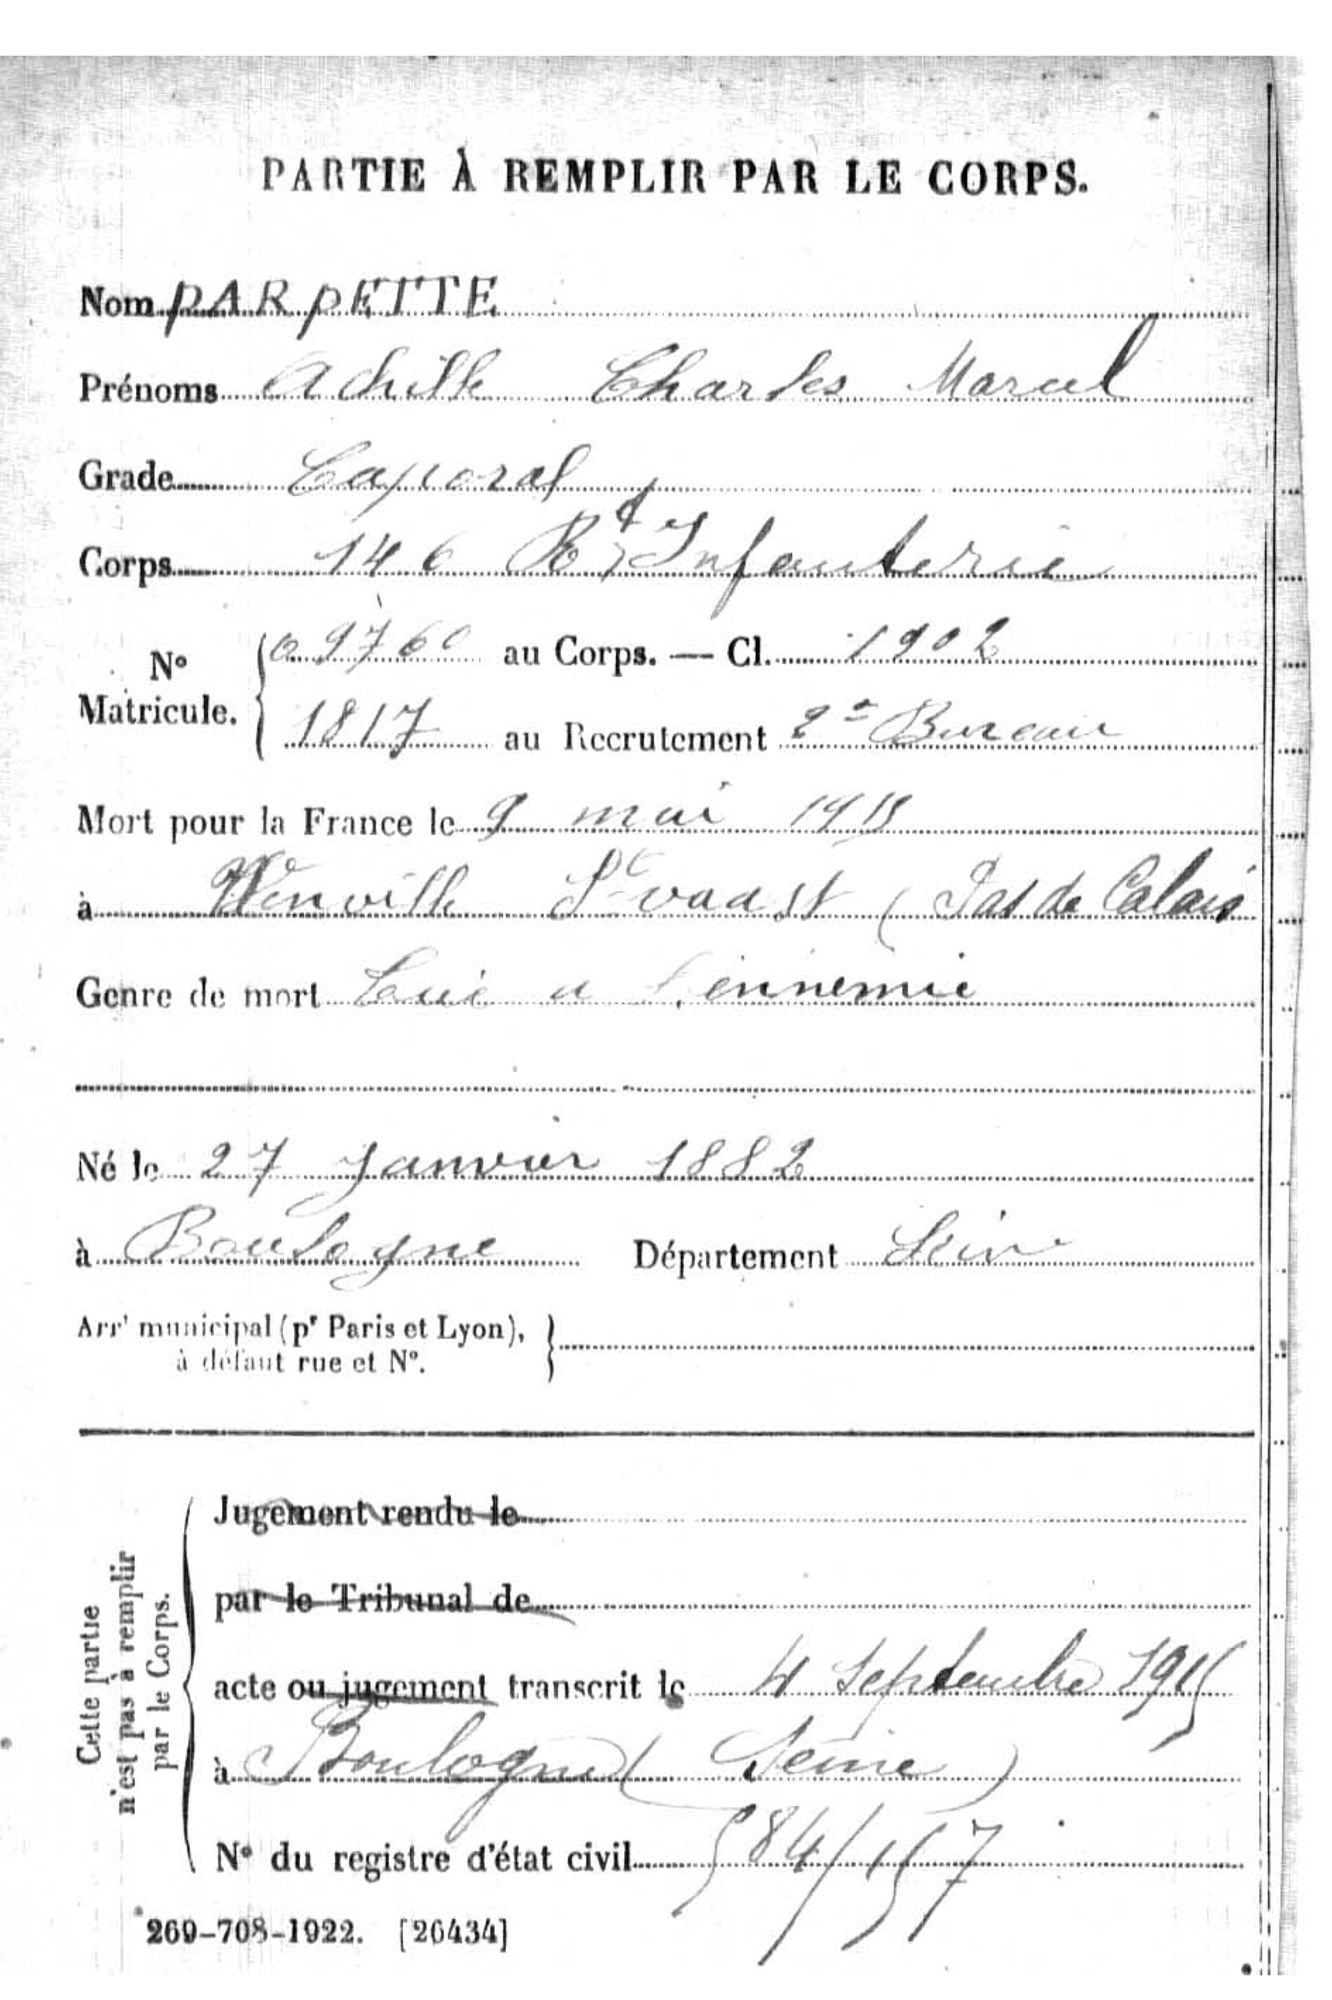 PARTIE À REMPLIR PAR LE CORPS.
Nom PARPETTE
Prénoms Achille Charles Marcel
Grade Caporal
Corps 146 Rt d'Infanterie
No Matricule. 09760 au Corps. — Cl. 1902
1817 au Recrutement 2e Bureau
Mort pour la France le 9 mai 1915
à St vaast (Pas de Calais
Genre de mort Tué a l'ennemie
Né le 27 Janvier 1882
à Boulogne Département Seine
Arrt municipal (pr Paris et Lyon),
à défaut rue et No.
Cette partie
n'est pas à remplir
par le Corps.
Jugement rendu le
par le Tribunal de
acte ou jugement transcrit le 4 Septembre 1915
à Boulogne (Seine)
No du registre d'état civil 584/157
269-708-1922. [26434]